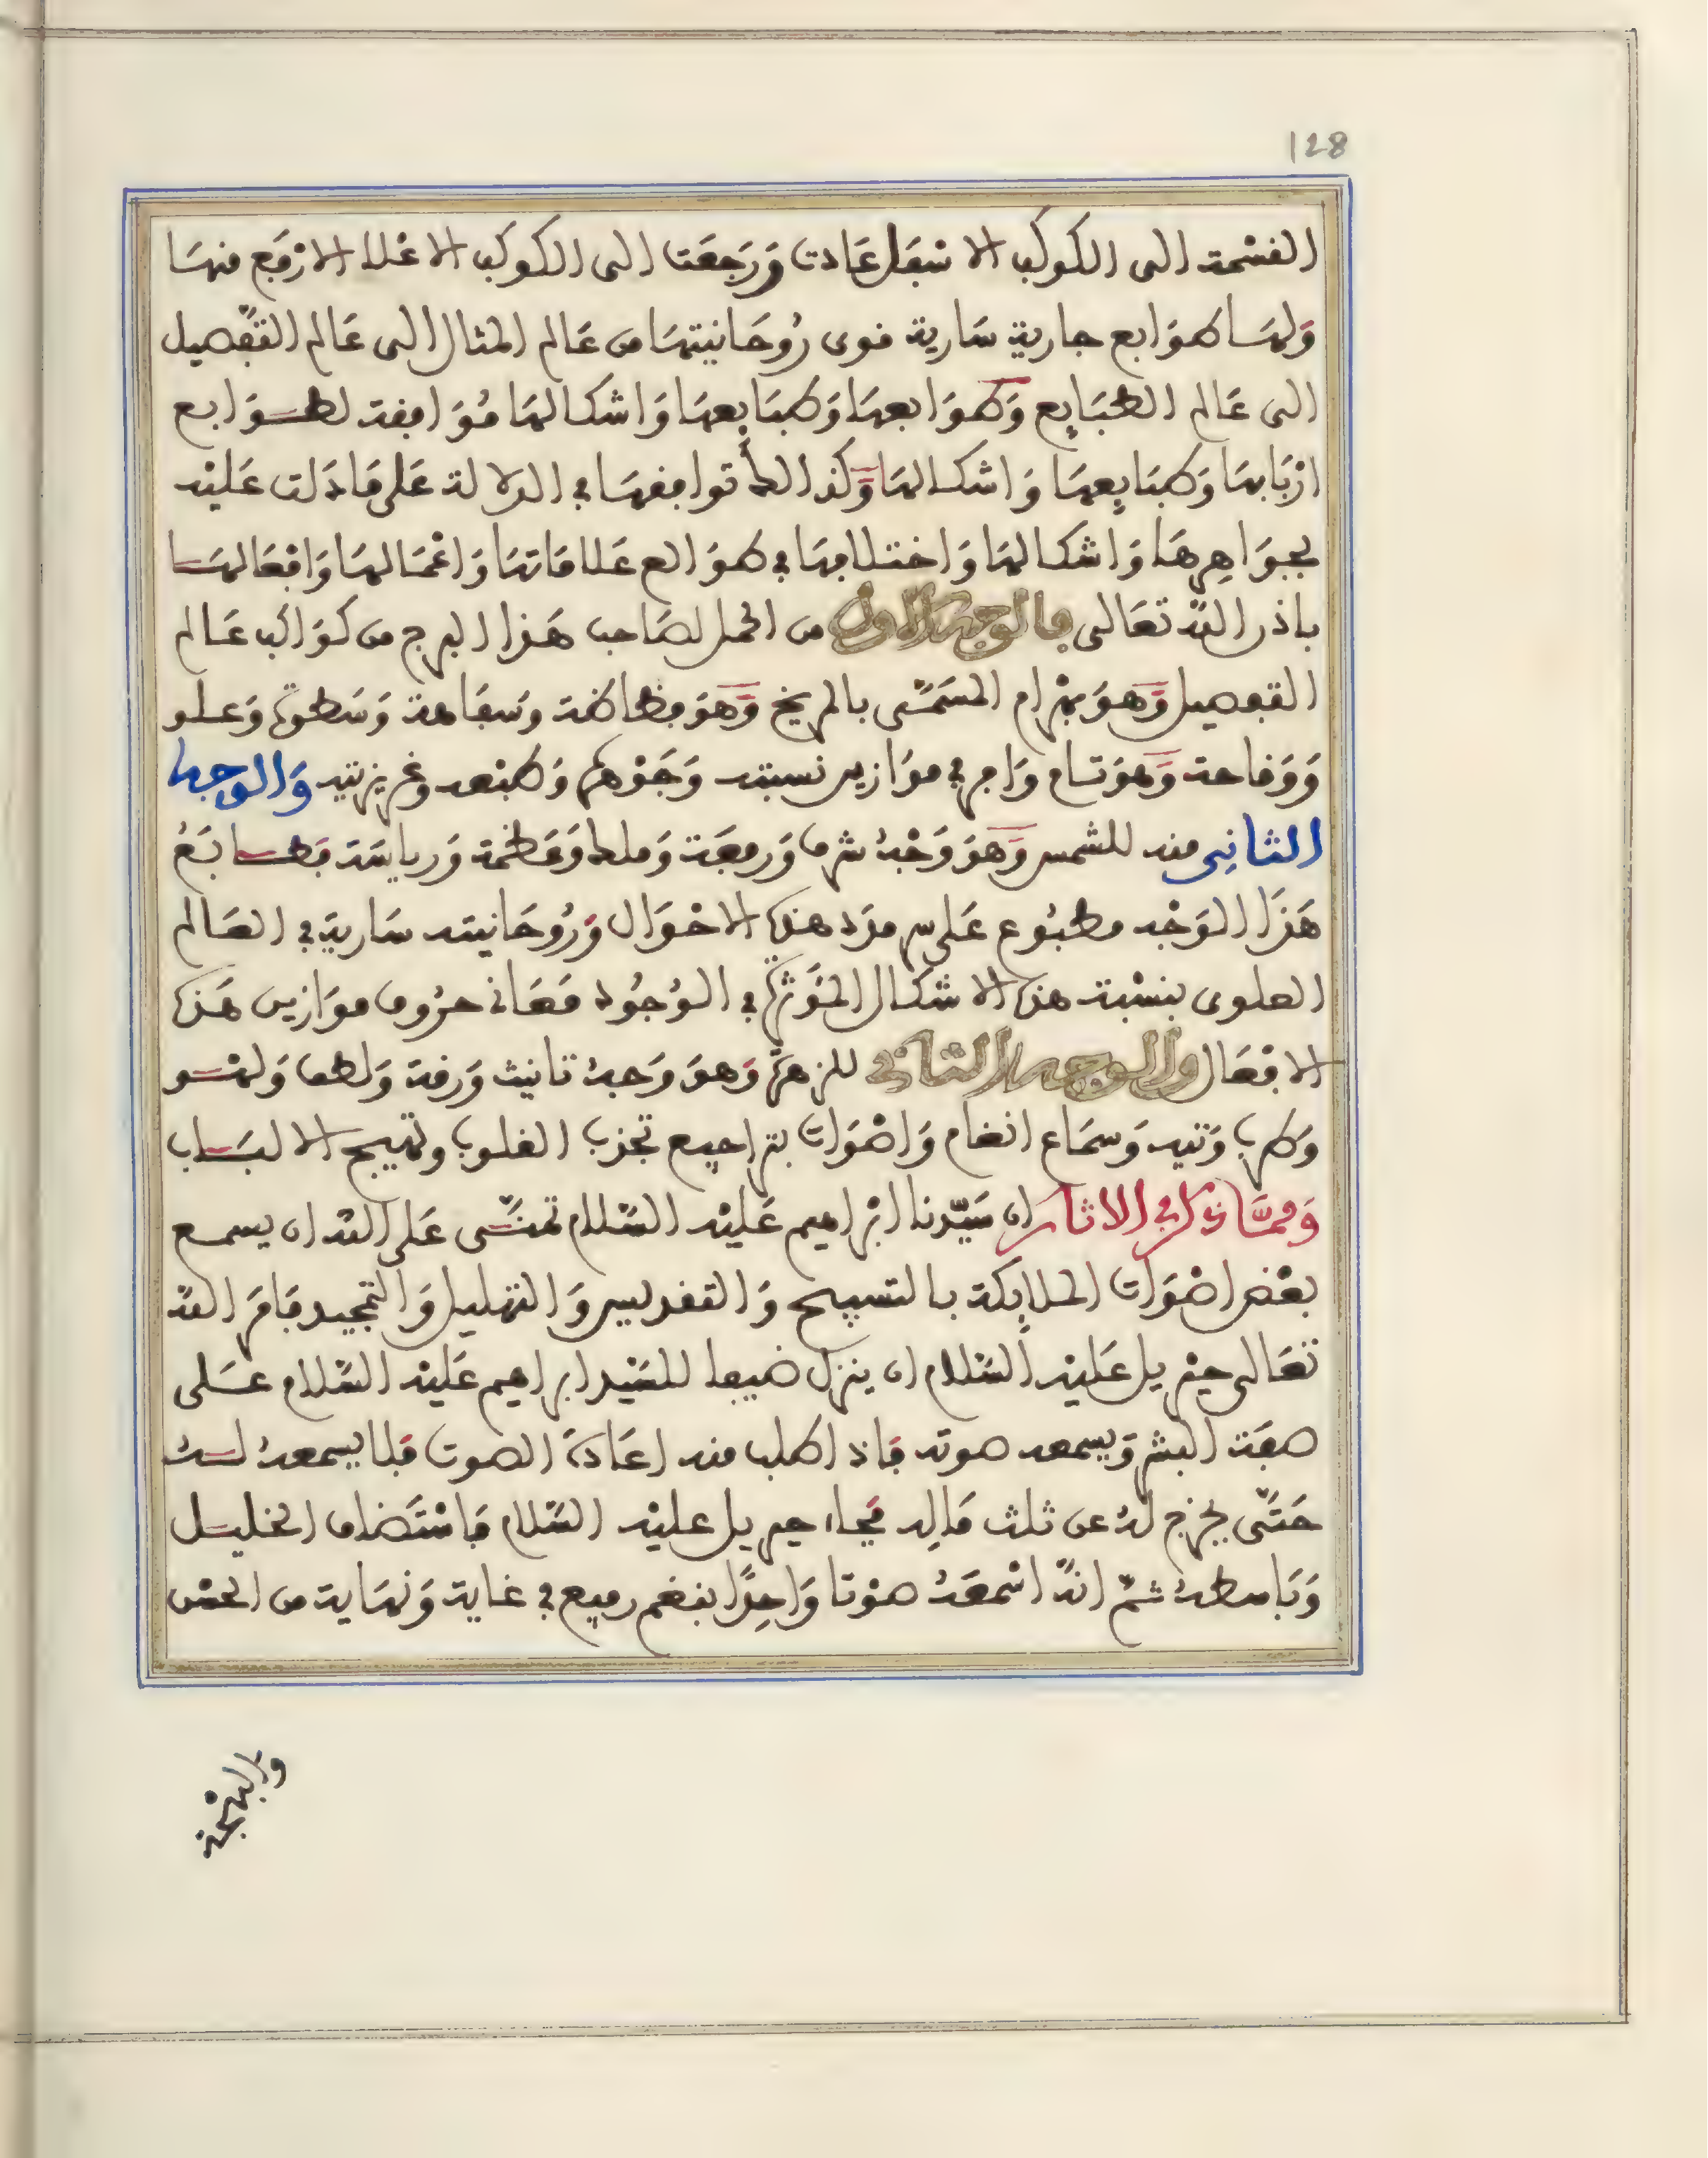 128
القسمة الى الكوكب الاسفل عادت ورَجَعَت الى الكوكب الاعلا الارفع منها
ولها طوابع جارية سارية قوى رُوحَانيتها من عَالم المثال الى عَالم التفصيل
الى عَالم الطبَايع وَطوَابعها وَطبَايعها وَاشكالها مُوَافِقة لطوَابع
ارْبَابها وَطبَايعها وَاشكالها وَكذالك توافقها في الدلالة على مَا دَلت عَليْه
بجوَاهِرهَا وَاشكالها وَاختلافها في طوَالع عَلامَاتها وَاعْمَالها وَافْعَالها
باذن الله تعَالى فالوجه الاول من الحمل لصَاحب هَذا البرج من كوَاكب عَالم
التفصيل وَهوَ بهْرام المسَمَّى بالمريخ وَهوَ فظاظة وسَفاهة وَسَطوة وَعلو
وَوقاحة وَهوَ تام وَامر في موَازين نسبته وَجَوْهره وَطبْعه وغريزتيه وَالوجه
الثاني منه للشمس وَهوَ وَجْهُ شرف وَرفعَة وَملك وَعَظمة وَرياسَة فطابَعُ
هَذا الوَجْه مطبُوع عَلى سر مدَد هذه الاحْوَال وَرُوحَانيته سَارية في العَالم
العلوى بنسْبة هذه الاشكال المؤثرة في الوُجُود فمَعَاني حرُوف موَازين هَذه
الافْعَال والوجه الثاني للزهرة وَهوَ وَجهُ تانيث وَرقة وَلطف وَلهو
وَطرب وَتيه وَسمَاع انغام وَاصْوَات بتراجيع تجذب القلوب وتهيج الالبَاب
وَممَّا ذكر في الاثار ان سَيّدنا ابْراهيم عَليْه السّلام تمنَّى عَلى الله ان يسمع
بعْض اصْوَات الملايكة بالتسبيح وَالتقديس وَالتهليل وَالتمجيد فامَرَ الله
تعَالى جبْريل عَليْه السّلام ان ينزل ضيفا للسَيْد ابراهيم عَليْه السّلام عَلى
صفَة البشر وَيسمعه صوته فاذا طلب منه اعَادة الصوت فلا يسمعهُ لهُ
حَتَّى يخرج لهُ عن ثلث مَالِه فجاء جبريل عليْه السّلام فاسْتَضاف الخليل
وَبَاسطهُ ثمّ انهُ اسْمعَهُ صوْتا وَاحِدًا بنغم رفيع في غاية وَنهَاية من الحسْن
والبهْجة